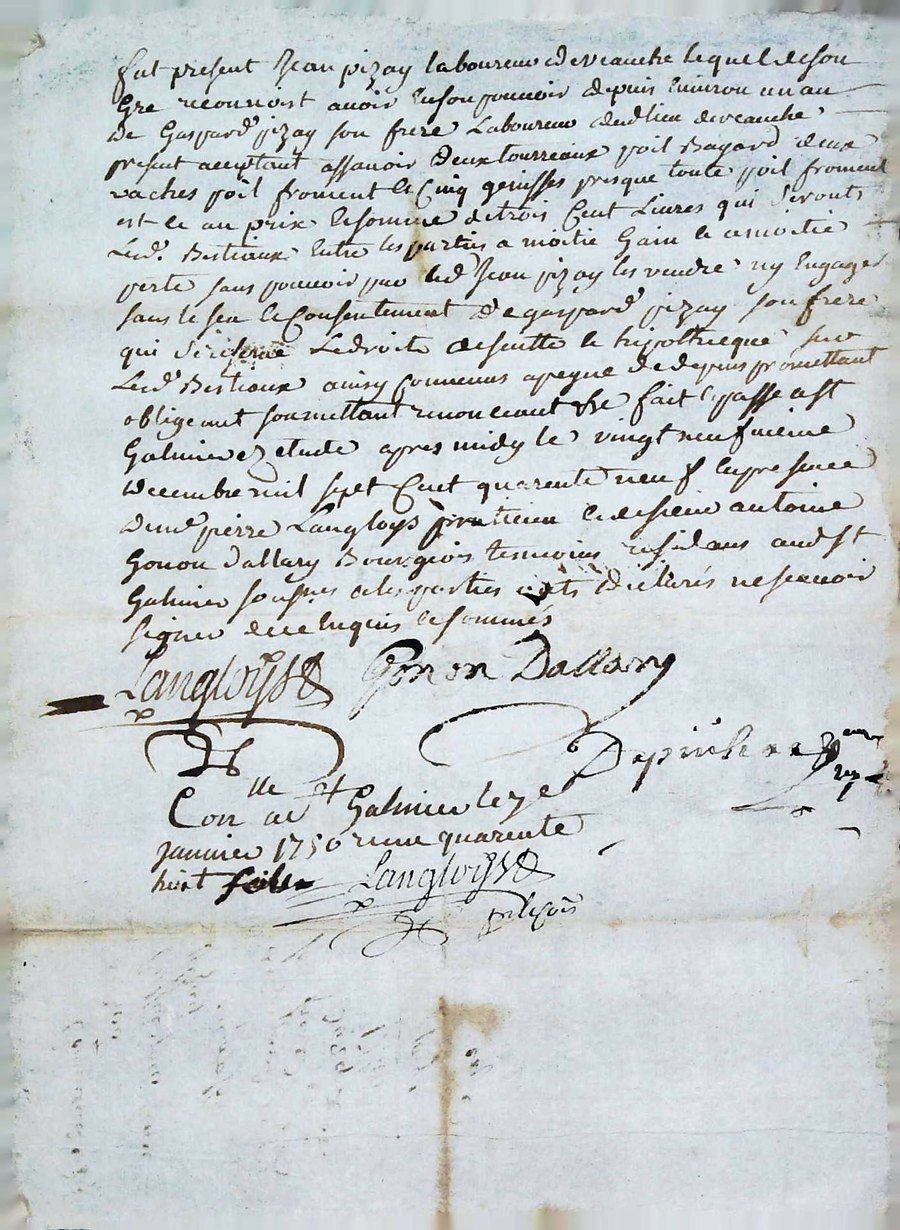 fut present Jean pizay laboureur de veauche lequel de son
Gre reconnoist avoir en son pouvoir depuis environ un an
de Gaspard pizay son frere Laboureur dud lieu de veauche
present acceptant assavoir deux tourreaux poil Bayard deux
vaches poil froment le Cinq genisses presque toute poil froment
est ce au prix le somme de trois Cent Livres qui seronts
Lesd. Bestiaux Entre les parties a moitié Gain le a moitié
perte sans pouvoir par led Jean pizay les vendre ny Engager
sans le seu le Consentement de gaspard pizay son frere
qui se reserve Le droite de suitte le hipothecque sur
Lesd Bestiaux ainsy convenus a peyne de depens promettant
obligeant soumettant renonceant &c fait le passe a st
Galmier ez etude apres midy le vingt neuf vieme
decembre mil sept Cent quarente neuf En presence
de me pierre Langloys pratitien le de sieur antoine
Gonon dallary Bourgeois temoins residans aud st
Galmier sousnes le les parties onts declarés ne scavoir
signer de ce Enquis le sommés
Langloys Gonon Dallary
Con lle a st Galmier le 7e
janvier 1750 reçu quarente
huit sols
Langloys